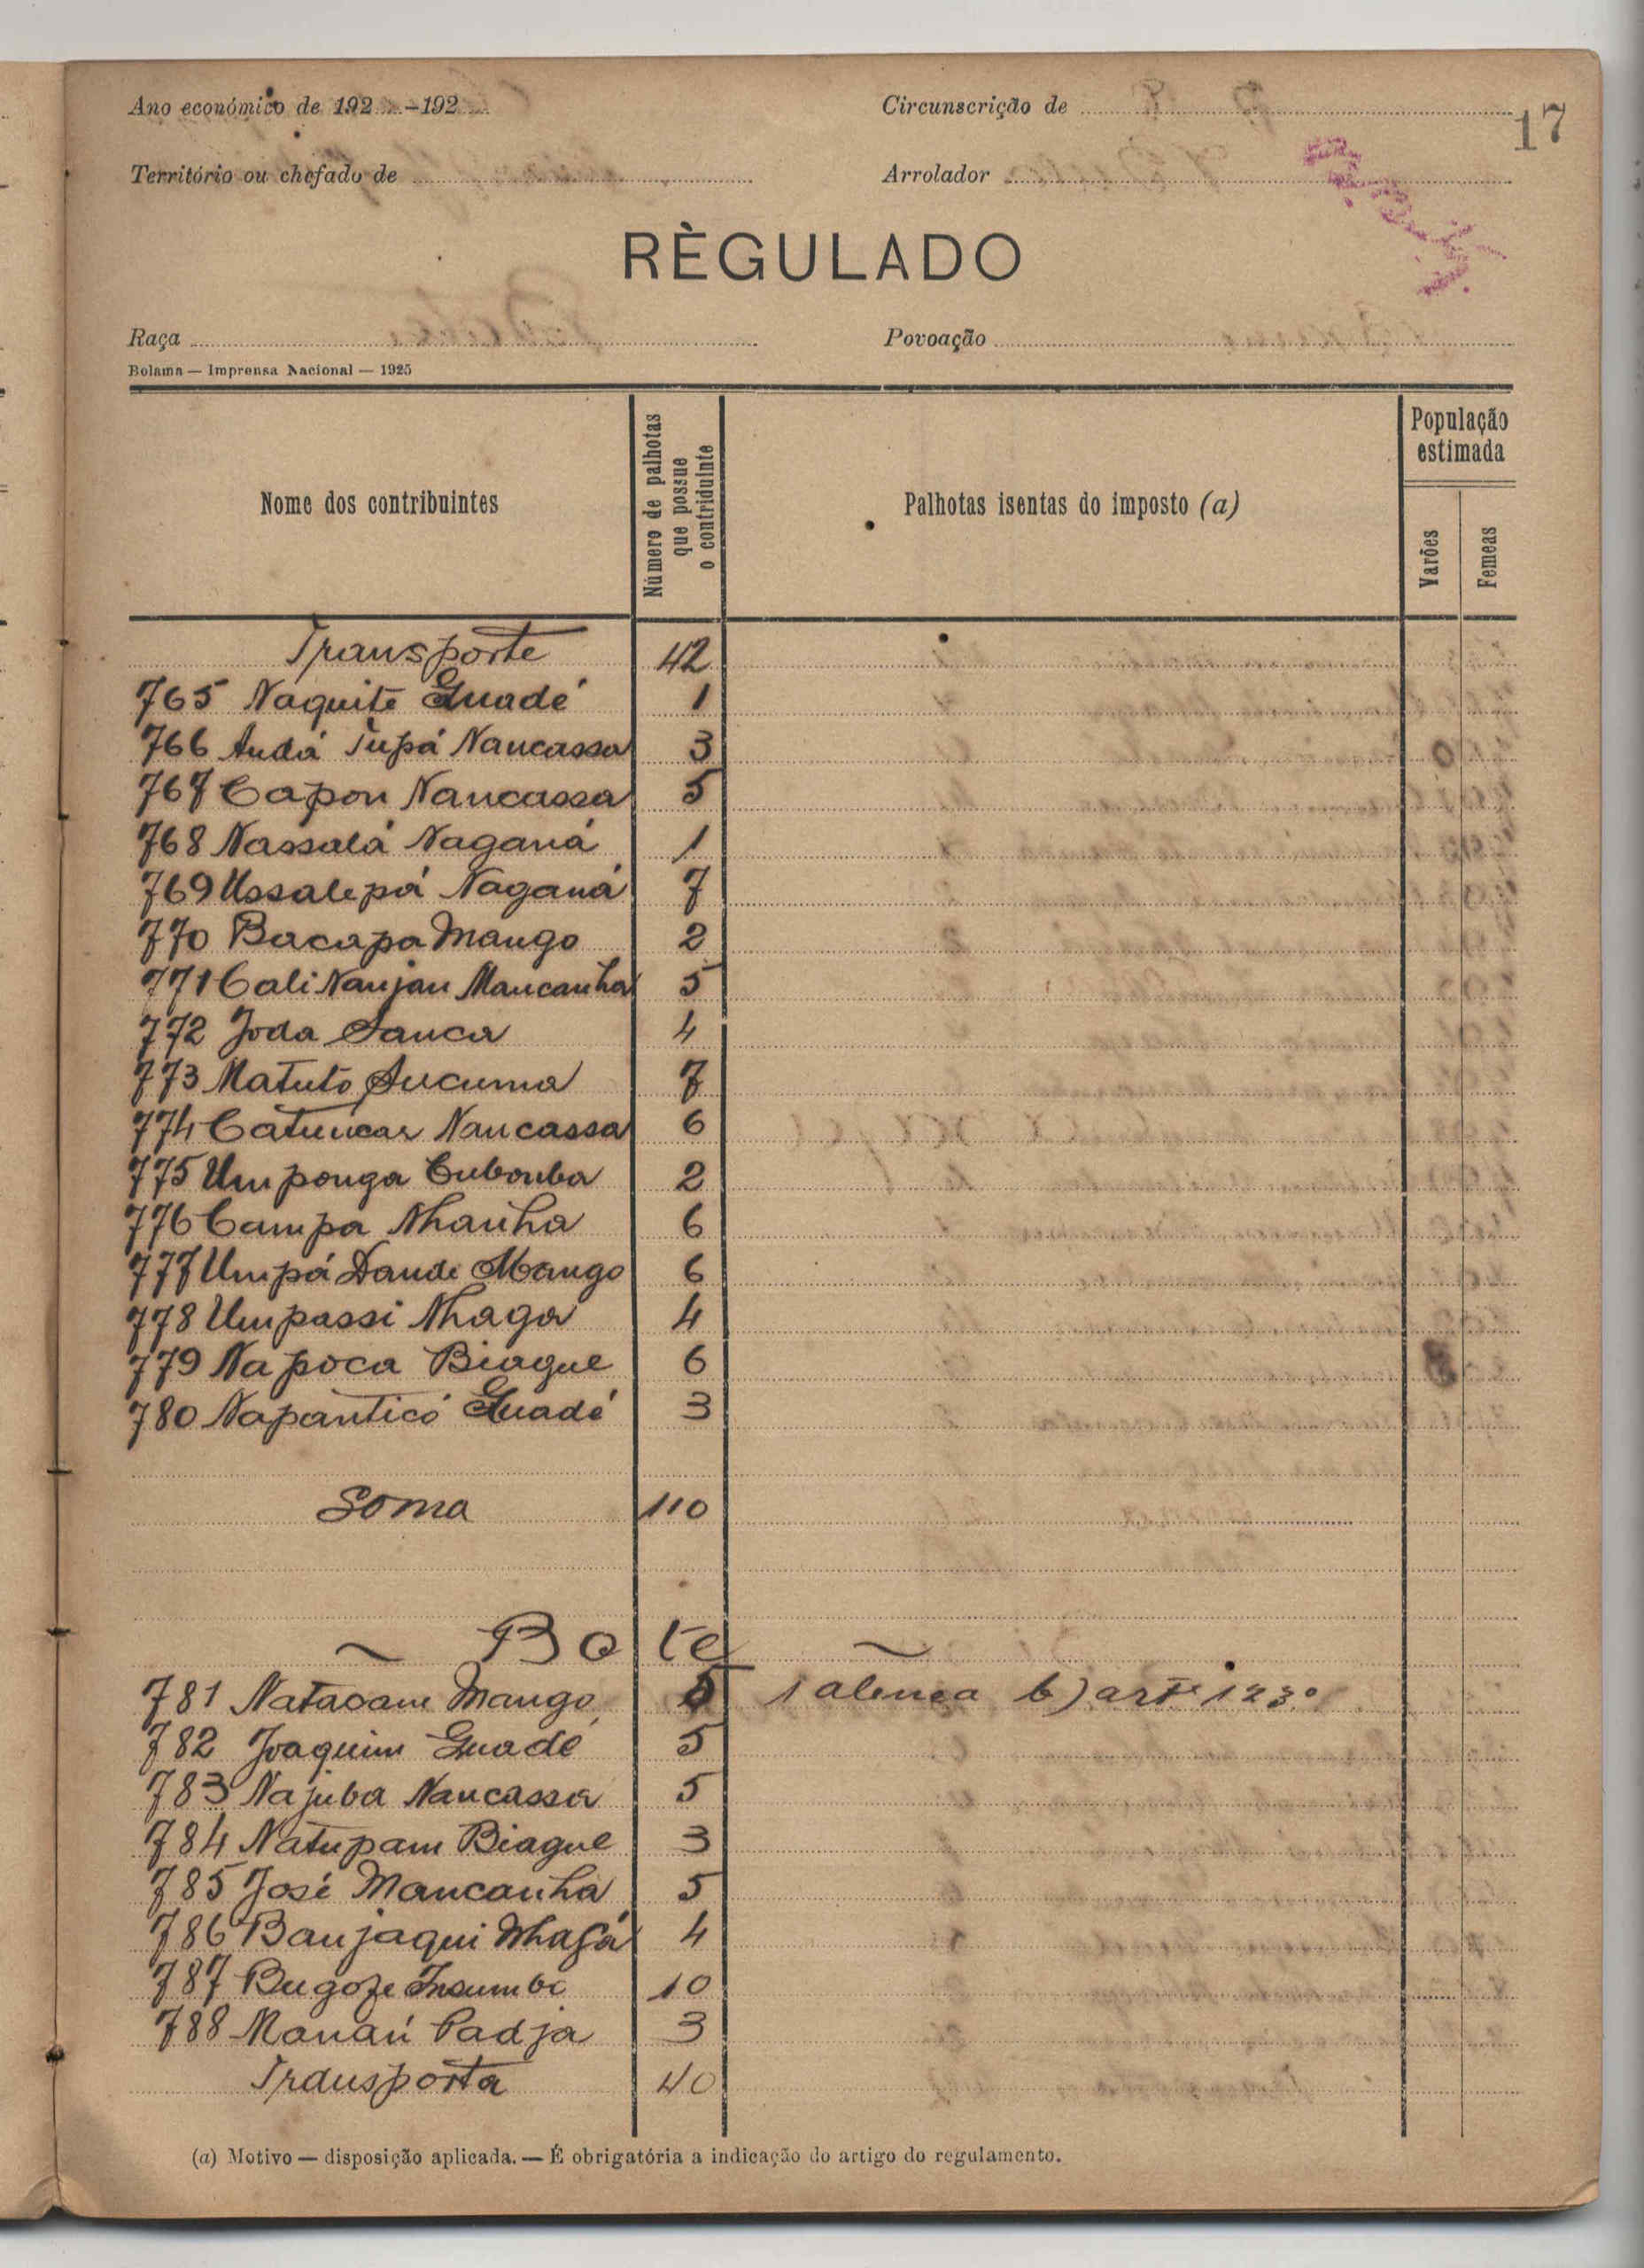 Ano económico de 192 -192
Circunscrição de
17
Território ou chefado de
Arrolador
RÈGULADO
Raça
Povoação
Bolama — Imprensa Nacional — 1925
Nome dos contribuintes
Número de palhotas
que possue
o contriduinte
Palhotas isentas do imposto (a)
População
estimada
Varões
Femeas
Transporte 42
765 Naquite Guadé 1
766 Audá Tupá Naucassa 3
767 Capon Naucassa 5
768 Nassalá Naganá 1
769 Ussalepá Naganá 7
770 Bacapa Mango 2
771 Cali Nanjan Mancanha 5
772 Joda Sanca 4
773 Matuto Sucuma 7
774 Catuncar Naucassa 6
775 Umponga Cubomba 2
776 Campa Nhanha 6
777 Umpá Dande Mango 6
778 Umpassi Nhaga 4
779 Napoca Biague 6
780 Napanticó Guadé 3
Soma 110
~ Bote ~
781 Natacam Mango 5 1 alenea b) artº 123º
782 Joaquim Guadé 5
783 Najuba Naucassa 5
784 Natupam Biague 3
785 José Mancanha 5
786 Banjaqui Nhafá 4
787 Bugofe Insumbe 10
788 Manaú Padja 3
Transporta 40
(a) Motivo — disposição aplicada. — É obrigatória a indicação do artigo do regulamento.